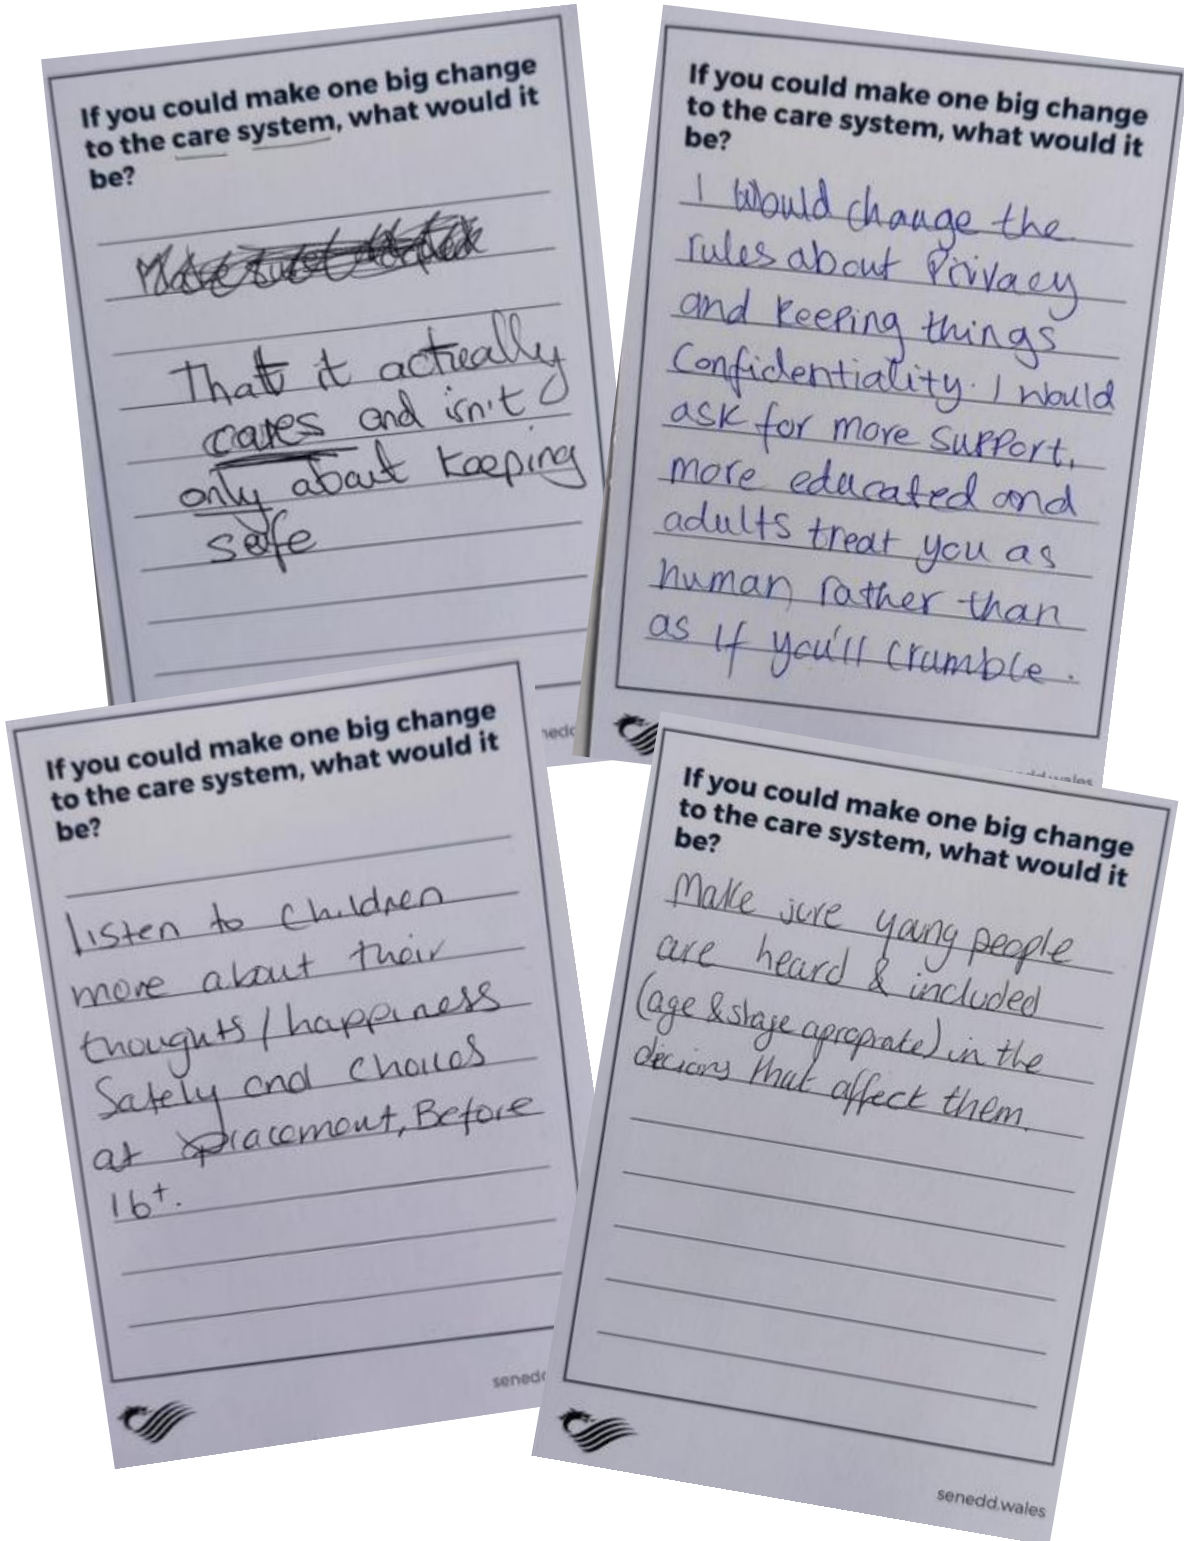 If you could make one big change
to the care system, what would it
be?
That it actually
cares and isn't
only about keeping
safe
If you could make one big change
to the care system, what would it
be?
I would change the
rules about Privacy
and keeping things
Confidentiality. I would
ask for more support,
more educated and
adults treat you as
human rather than
as if you'll crumble.
If you could make one big change
to the care system, what would it
be?
listen to children
more about their
thoughts/happiness
Safely and choices
at placement, Before
16+.
senedd
If you could make one big change
to the care system, what would it
be?
Make sure young people
are heard & included
(age & stage apropriate) in the
decions that affect them.
senedd.wales